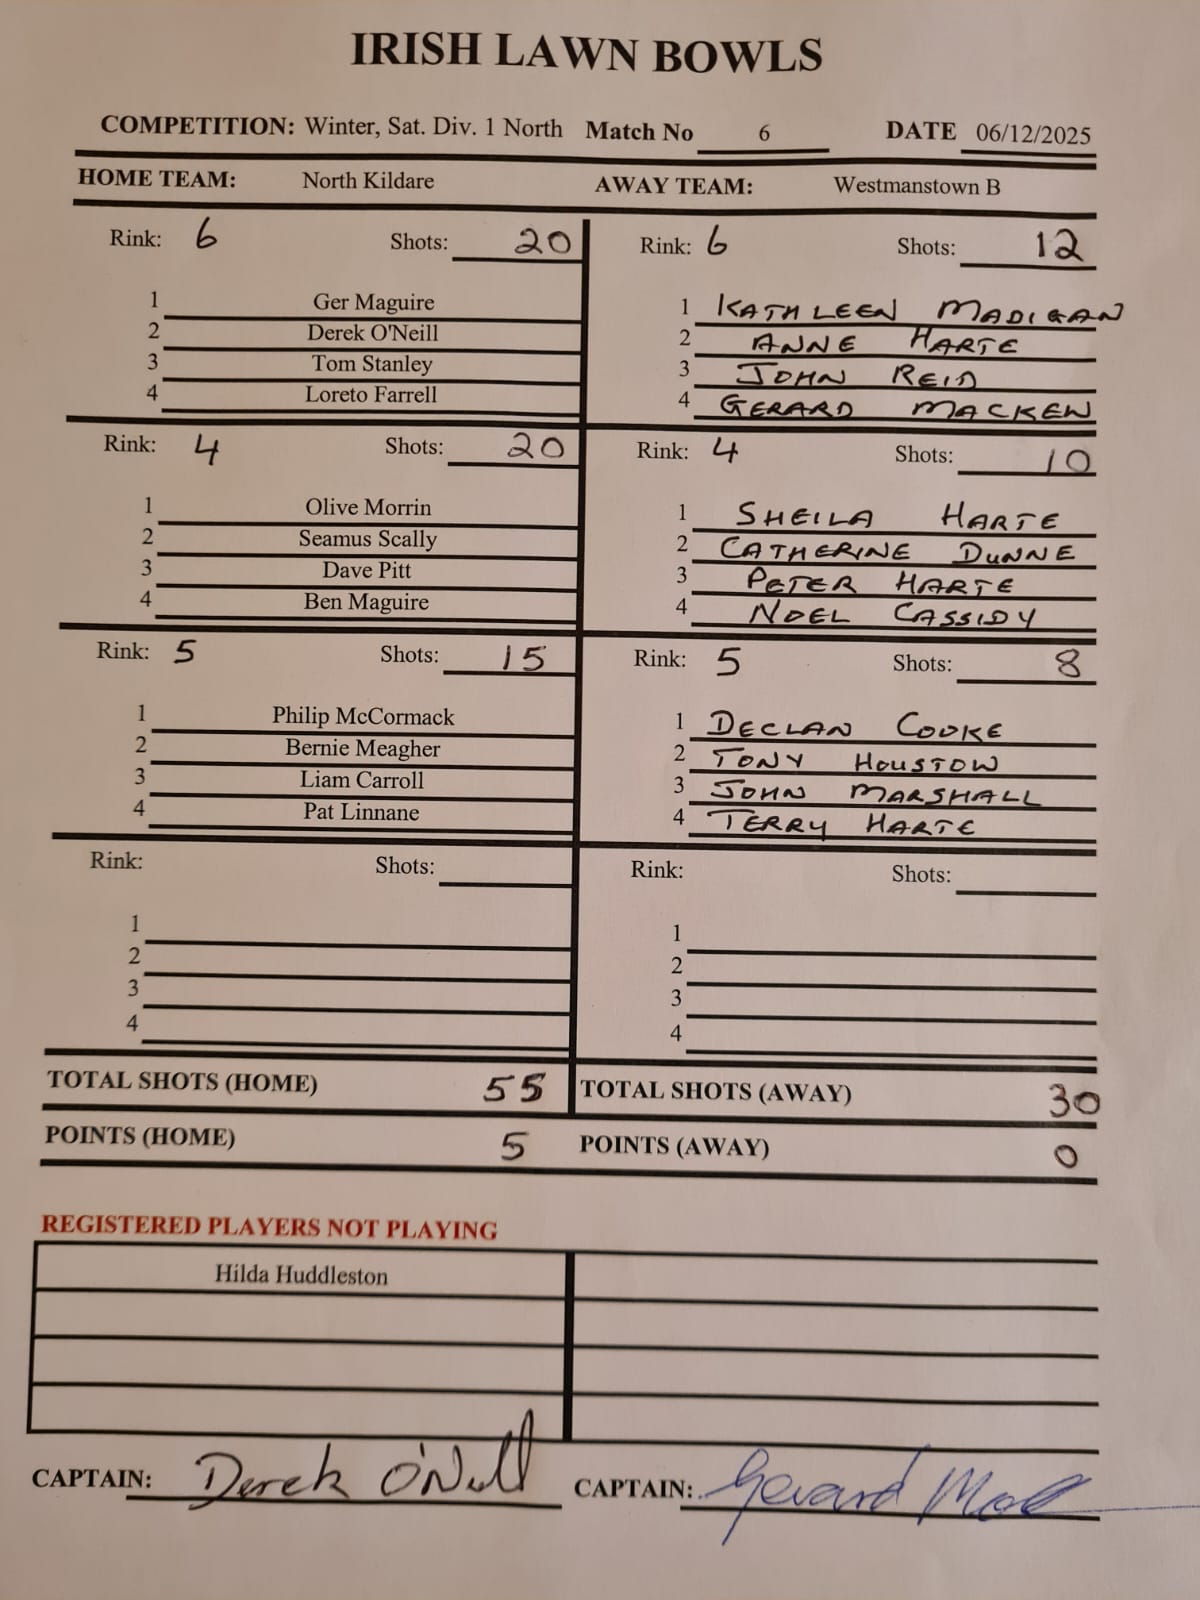 IRISH LAWN BOWLS
COMPETITION: Winter, Sat. Div. 1 North Match No 6 DATE 06/12/2025
HOME TEAM: North Kildare AWAY TEAM: Westmanstown B
Rink: 6 Shots: 20 Rink: 6 Shots: 12
1 Ger Maguire 1 KATHLEEN MADIGAN
2 Derek O'Neill 2 ANNE HARTE
3 Tom Stanley 3 JOHN REID
4 Loreto Farrell 4 GERARD MACKEN
Rink: 4 Shots: 20 Rink: 4 Shots: 10
1 Olive Morrin 1 SHEILA HARTE
2 Seamus Scally 2 CATHERINE DUNNE
3 Dave Pitt 3 PETER HARTE
4 Ben Maguire 4 NOEL CASSIDY
Rink: 5 Shots: 15 Rink: 5 Shots: 8
1 Philip McCormack 1 DECLAN COOKE
2 Bernie Meagher 2 TONY HOUSTON
3 Liam Carroll 3 JOHN MARSHALL
4 Pat Linnane 4 TERRY HARTE
Rink: Shots: Rink: Shots:
1 1
2 2
3 3
4 4
TOTAL SHOTS (HOME) 55 TOTAL SHOTS (AWAY) 30
POINTS (HOME) 5 POINTS (AWAY) 0
REGISTERED PLAYERS NOT PLAYING
Hilda Huddleston
CAPTAIN: Derek O'Neill CAPTAIN: Gerard